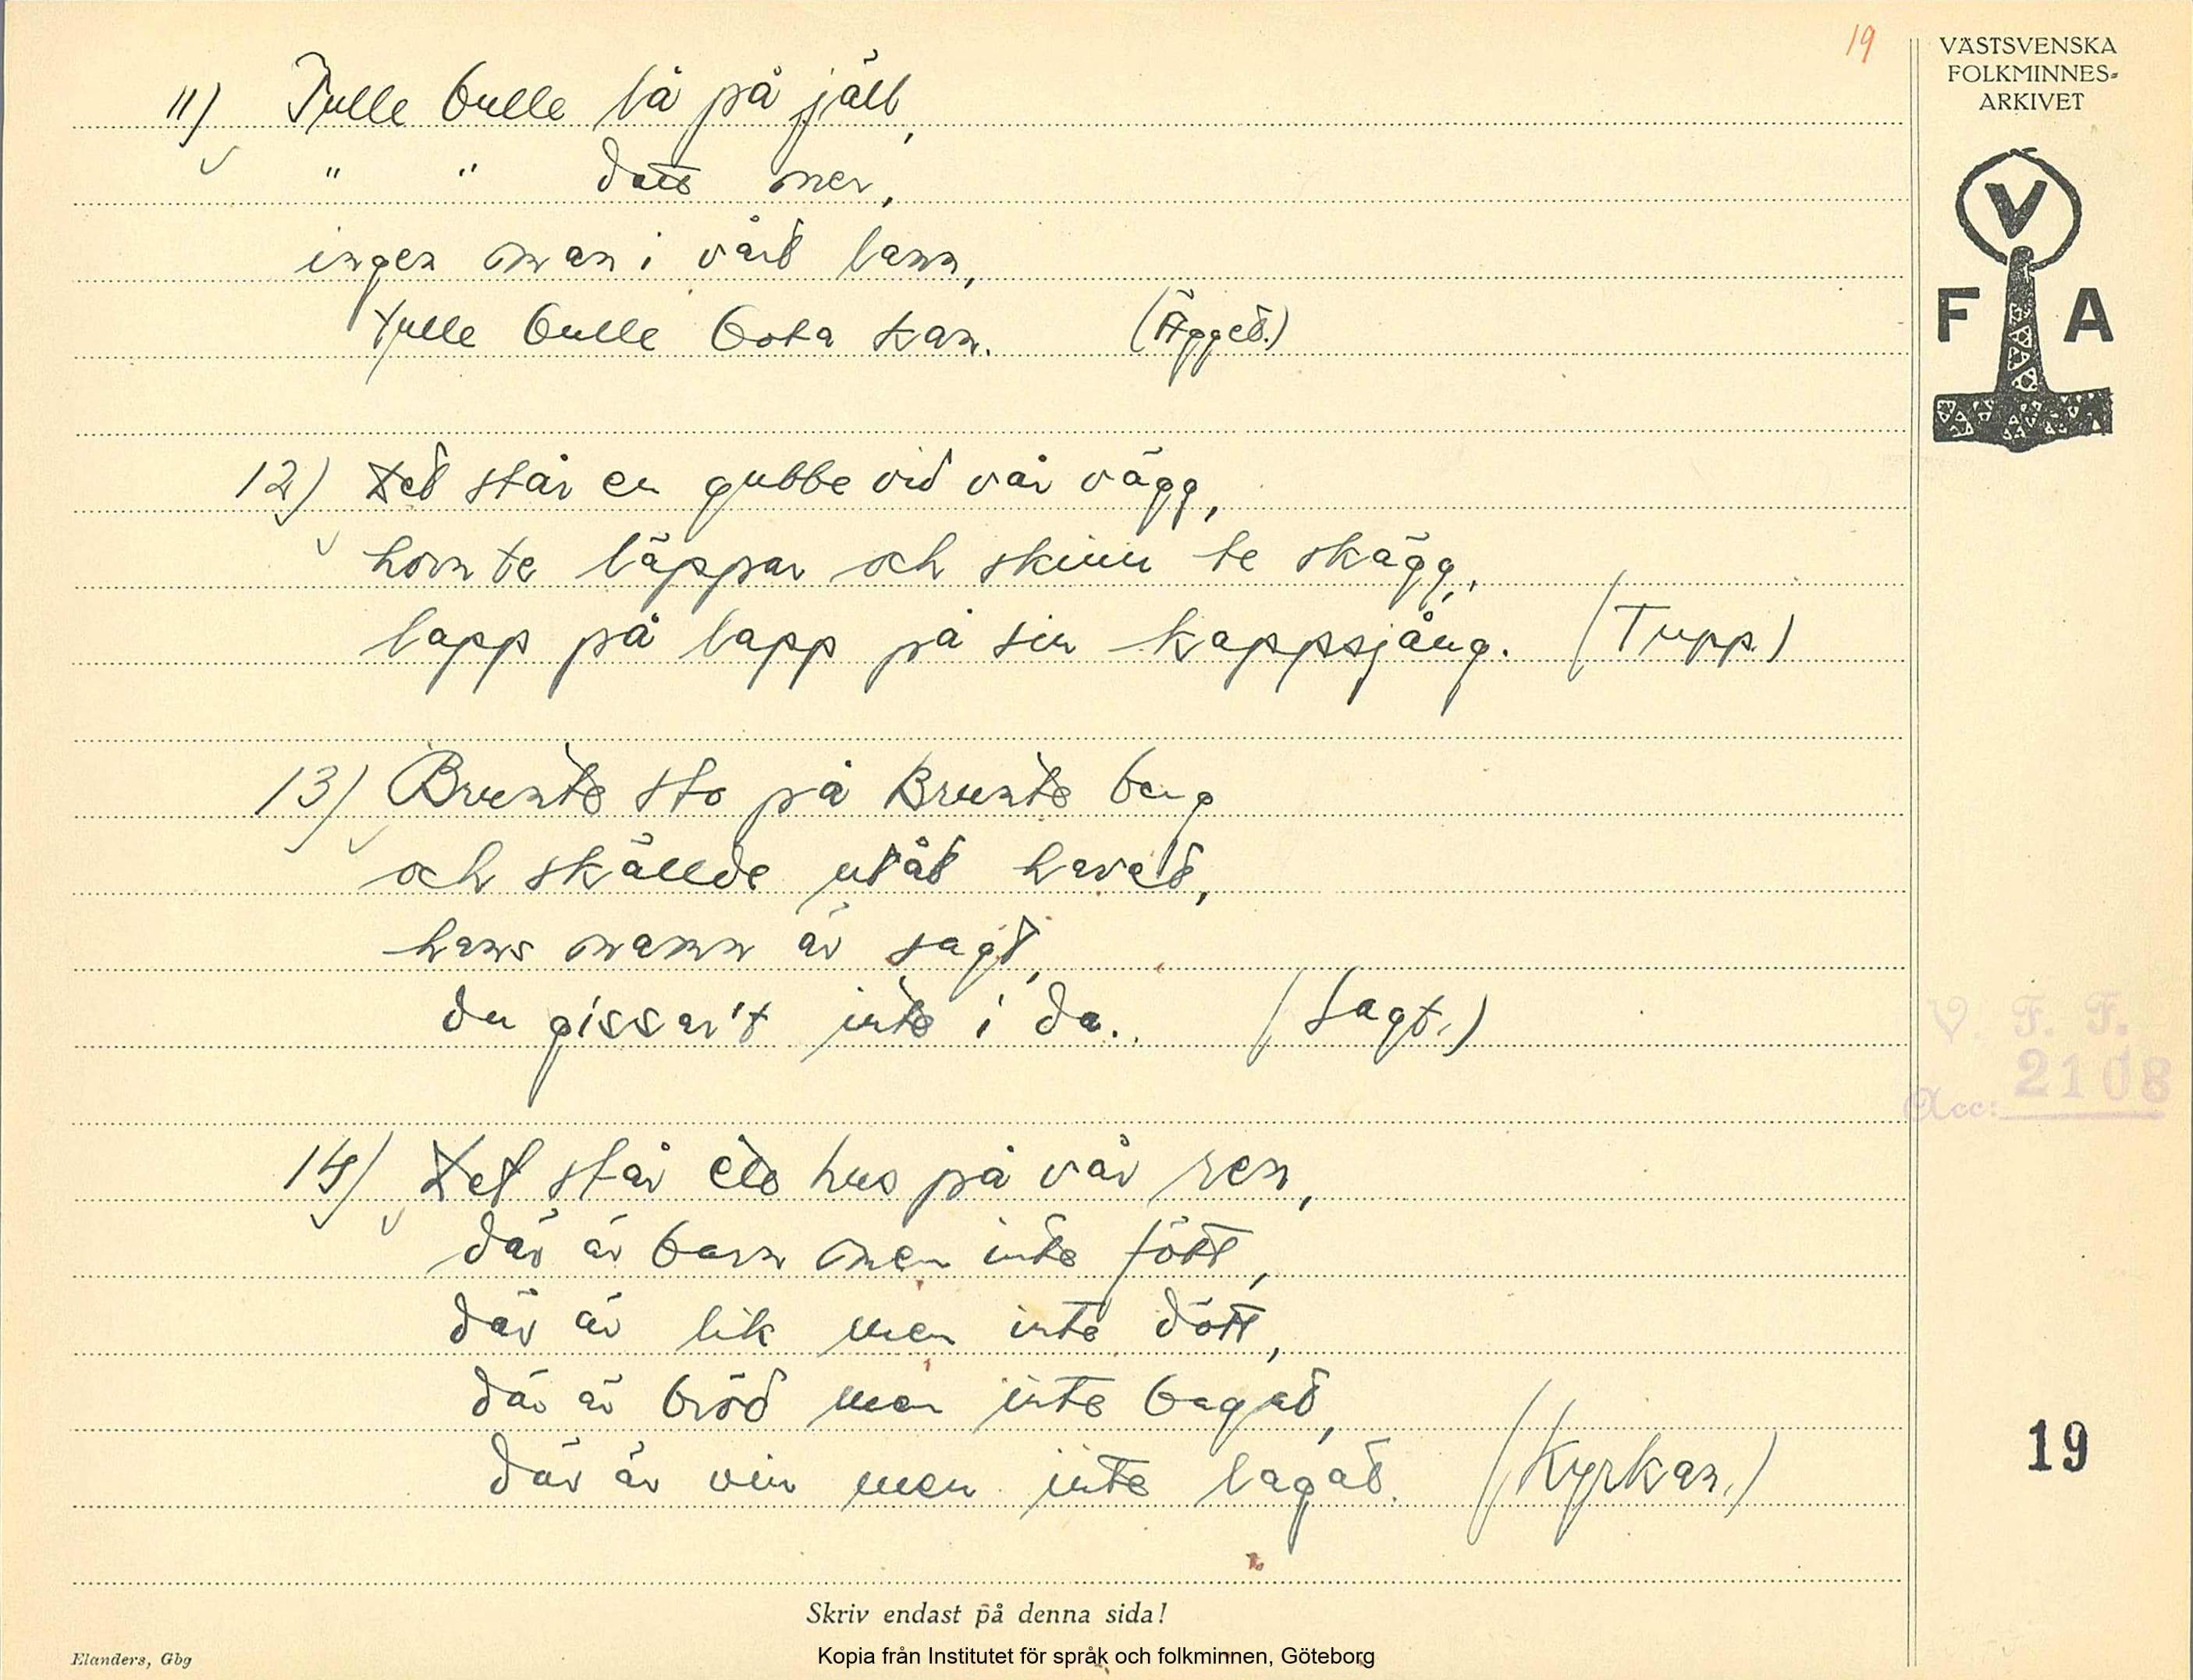 19
VÄSTSVENSKA
FOLKMINNES-
ARKIVET
V
F A
11) Tulle bulle lå på jäll,
" " datt ner,
ingen man i vårt lann,
tulle bulle bota kan. (Ägget.)
12) Det står en gubbe vid vår vägg,
horn te läppar och skinn te skägg,
lapp på lapp på sin kappsjång. (Tupp.)
13) Brunte sto på Brunte berg
och skällde utåt havet,
hans namn är sagt,
du gissar't inte i da. (Sagt.)
14) Det står ett hus på vår ren,
där är barn men inte fött,
där är lik men inte dött,
där är bröd men inte bagat,
där är vin men inte lagat. (Kyrkan.)
V. F. F.
Acc: 2108
19
Skriv endast på denna sida!
Elanders, Gbg
Kopia från Institutet för språk och folkminnen, Göteborg